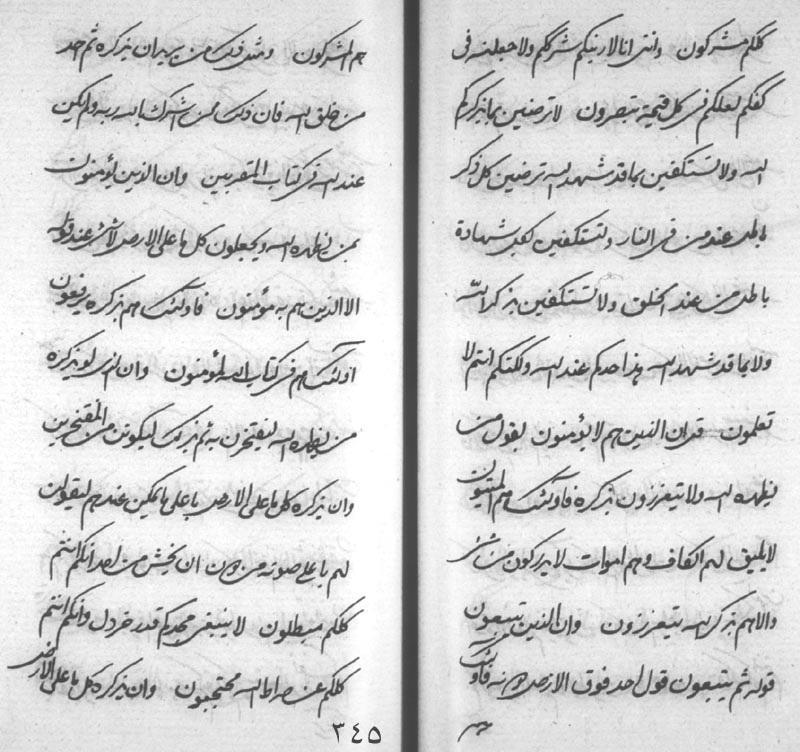 كلكم مشركون وانتي انا لارينكم شرككم ولاجعلنه في
كفكم لعلكم في كل قيمة تبصرون لا ترضين بما يذكركم
الله ولا تستكفين بما قد شهد الله ترضين كل ذكر
باطل عند من في النار وتستكفين لكل شهادة
باطل من عند الخلق ولا تستكفين بذكر الله
ولا بما قد شهد الله هذا حدكم عند الله ولكنكم انتم لا
تعلمون قل ان الذين هم لا يؤمنون بقول من
يظهره الله ولا يتعززون بذكره فاولئك هم الميتون
لا يليق لهم الكاف وهم اموات لا يدركون من شئ
والا هم بذكر الله يتعززون وان الذين يتبعون
قوله ثم يتبعون قول احد فوق الارض دونه فاولئك
هم
هم المشركون ومثل ذلك من يريد ان يذكره ثم احد
من خلق الله فان ذلك ممن اشرك بالله ربه ولم يكن
عند الله في كتاب المتقربين وان الذين يؤمنون
بمن يظهره الله ويجعلون كل ما على الارض لا شئ عند قوله
الا الذين هم به مؤمنون فاولئك هم بذكره يرفعون
اولئك هم في كتاب الله لمؤمنون وان الذي لو يذكره
من يظهره الله ليفتخرن به ثم بذلك ليكونن من المفتخرين
وان يذكره كل ما على الارض باعلى ما يمكن عندهم ليقولن
لهم باعلى صوته من دون ان يخش من احد انكم انتم
كلكم مبطلون لا ينبغي مجدكم قدر خردل وانكم انتم
كلكم عن صراط الله محتجبون وان يذكره كل ما على الارض
٣٤٥